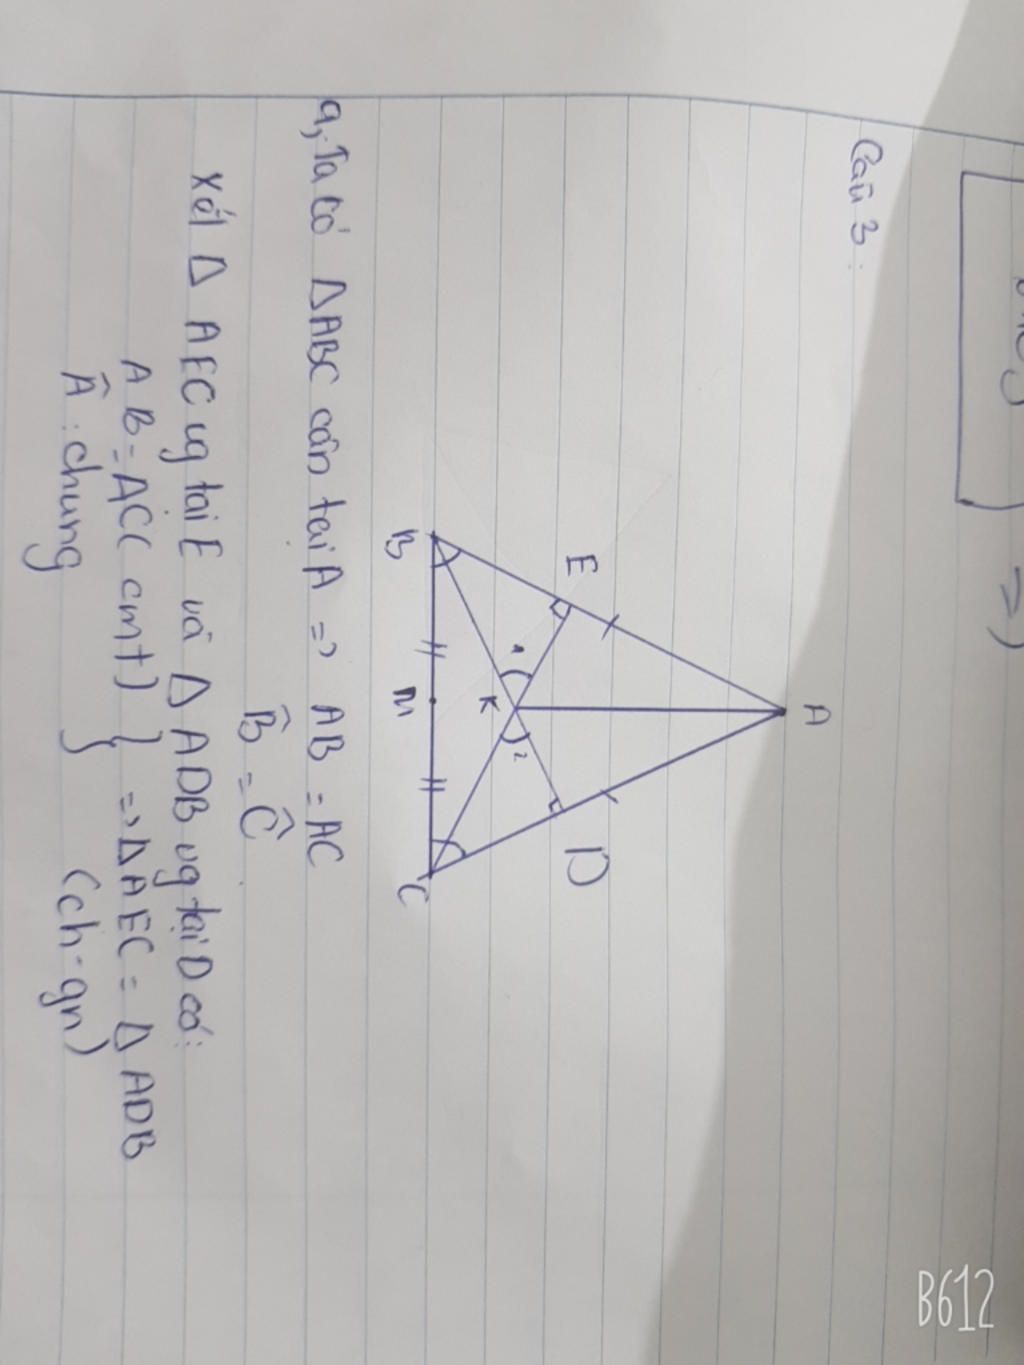 Câu 3:
A
E
D
1
K
2
B
M
C
a, Ta có ΔABC cân tại A => AB = AC
B̂ = Ĉ
Xét Δ AEC vg tại E và Δ ADB vg tại D có:
AB = AC ( cmt ) } => Δ AEC = Δ ADB
Â : chung } (ch-gn)
B612